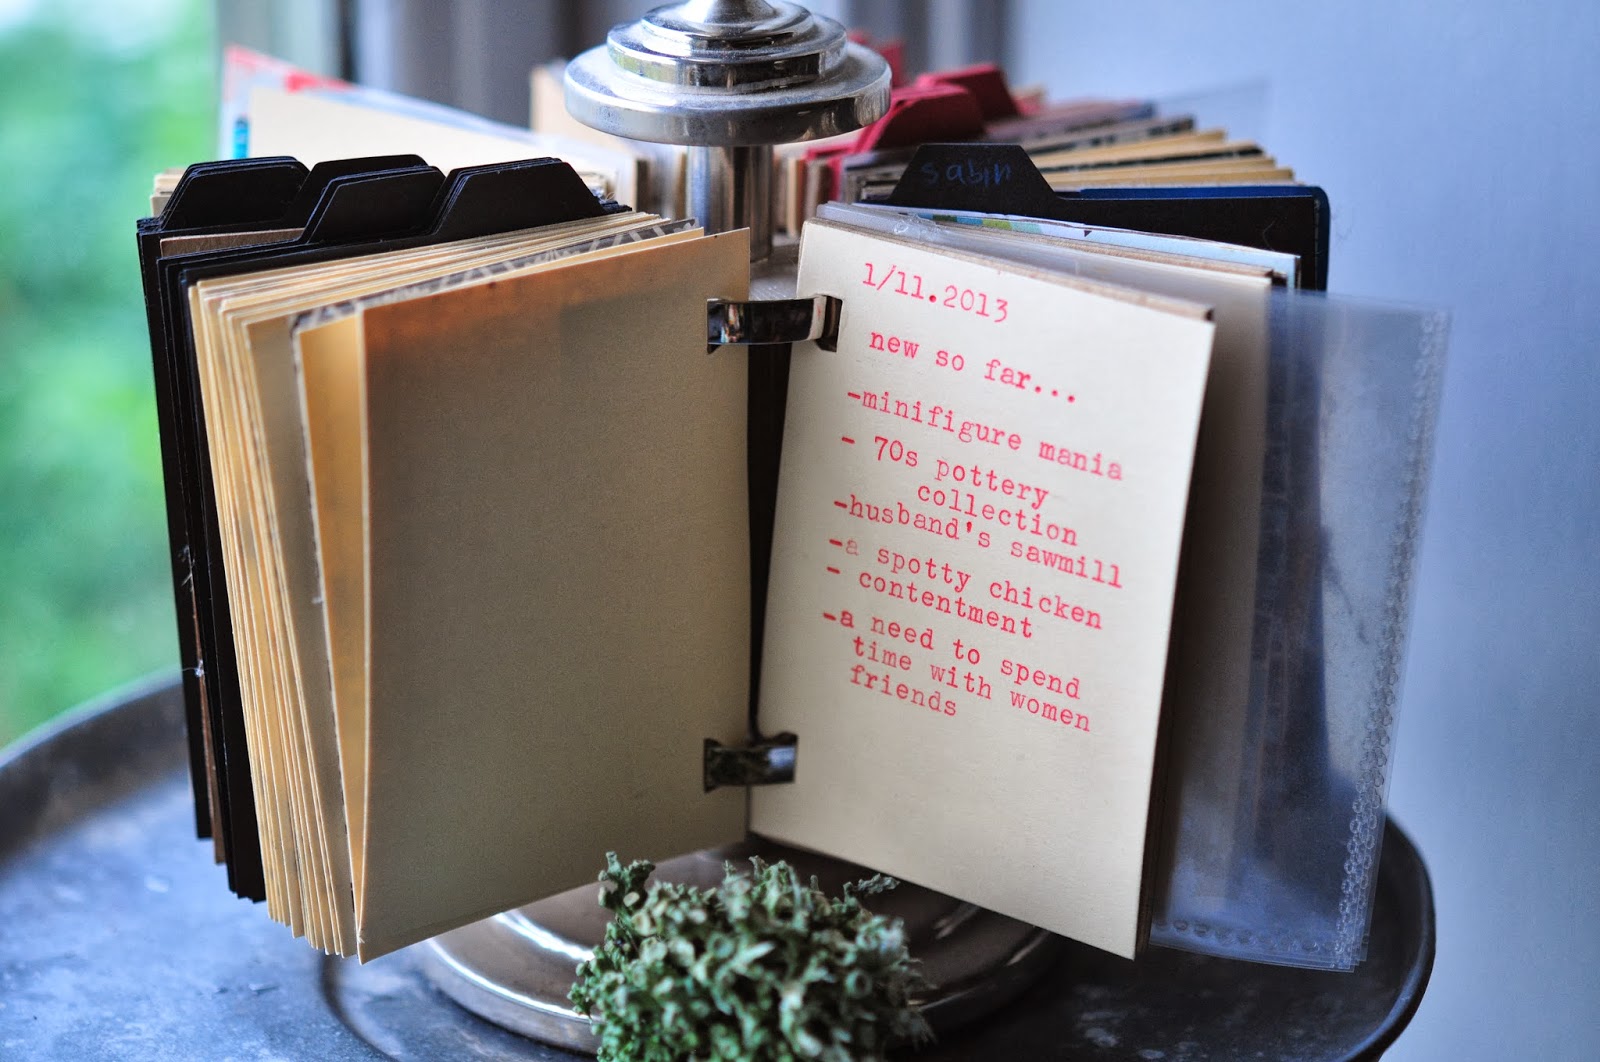 sabin
1/11.2013
new so far...
-minifigure mania
- 70s pottery
collection
-husband's sawmill
-a spotty chicken
- contentment
-a need to spend
time with women
friends